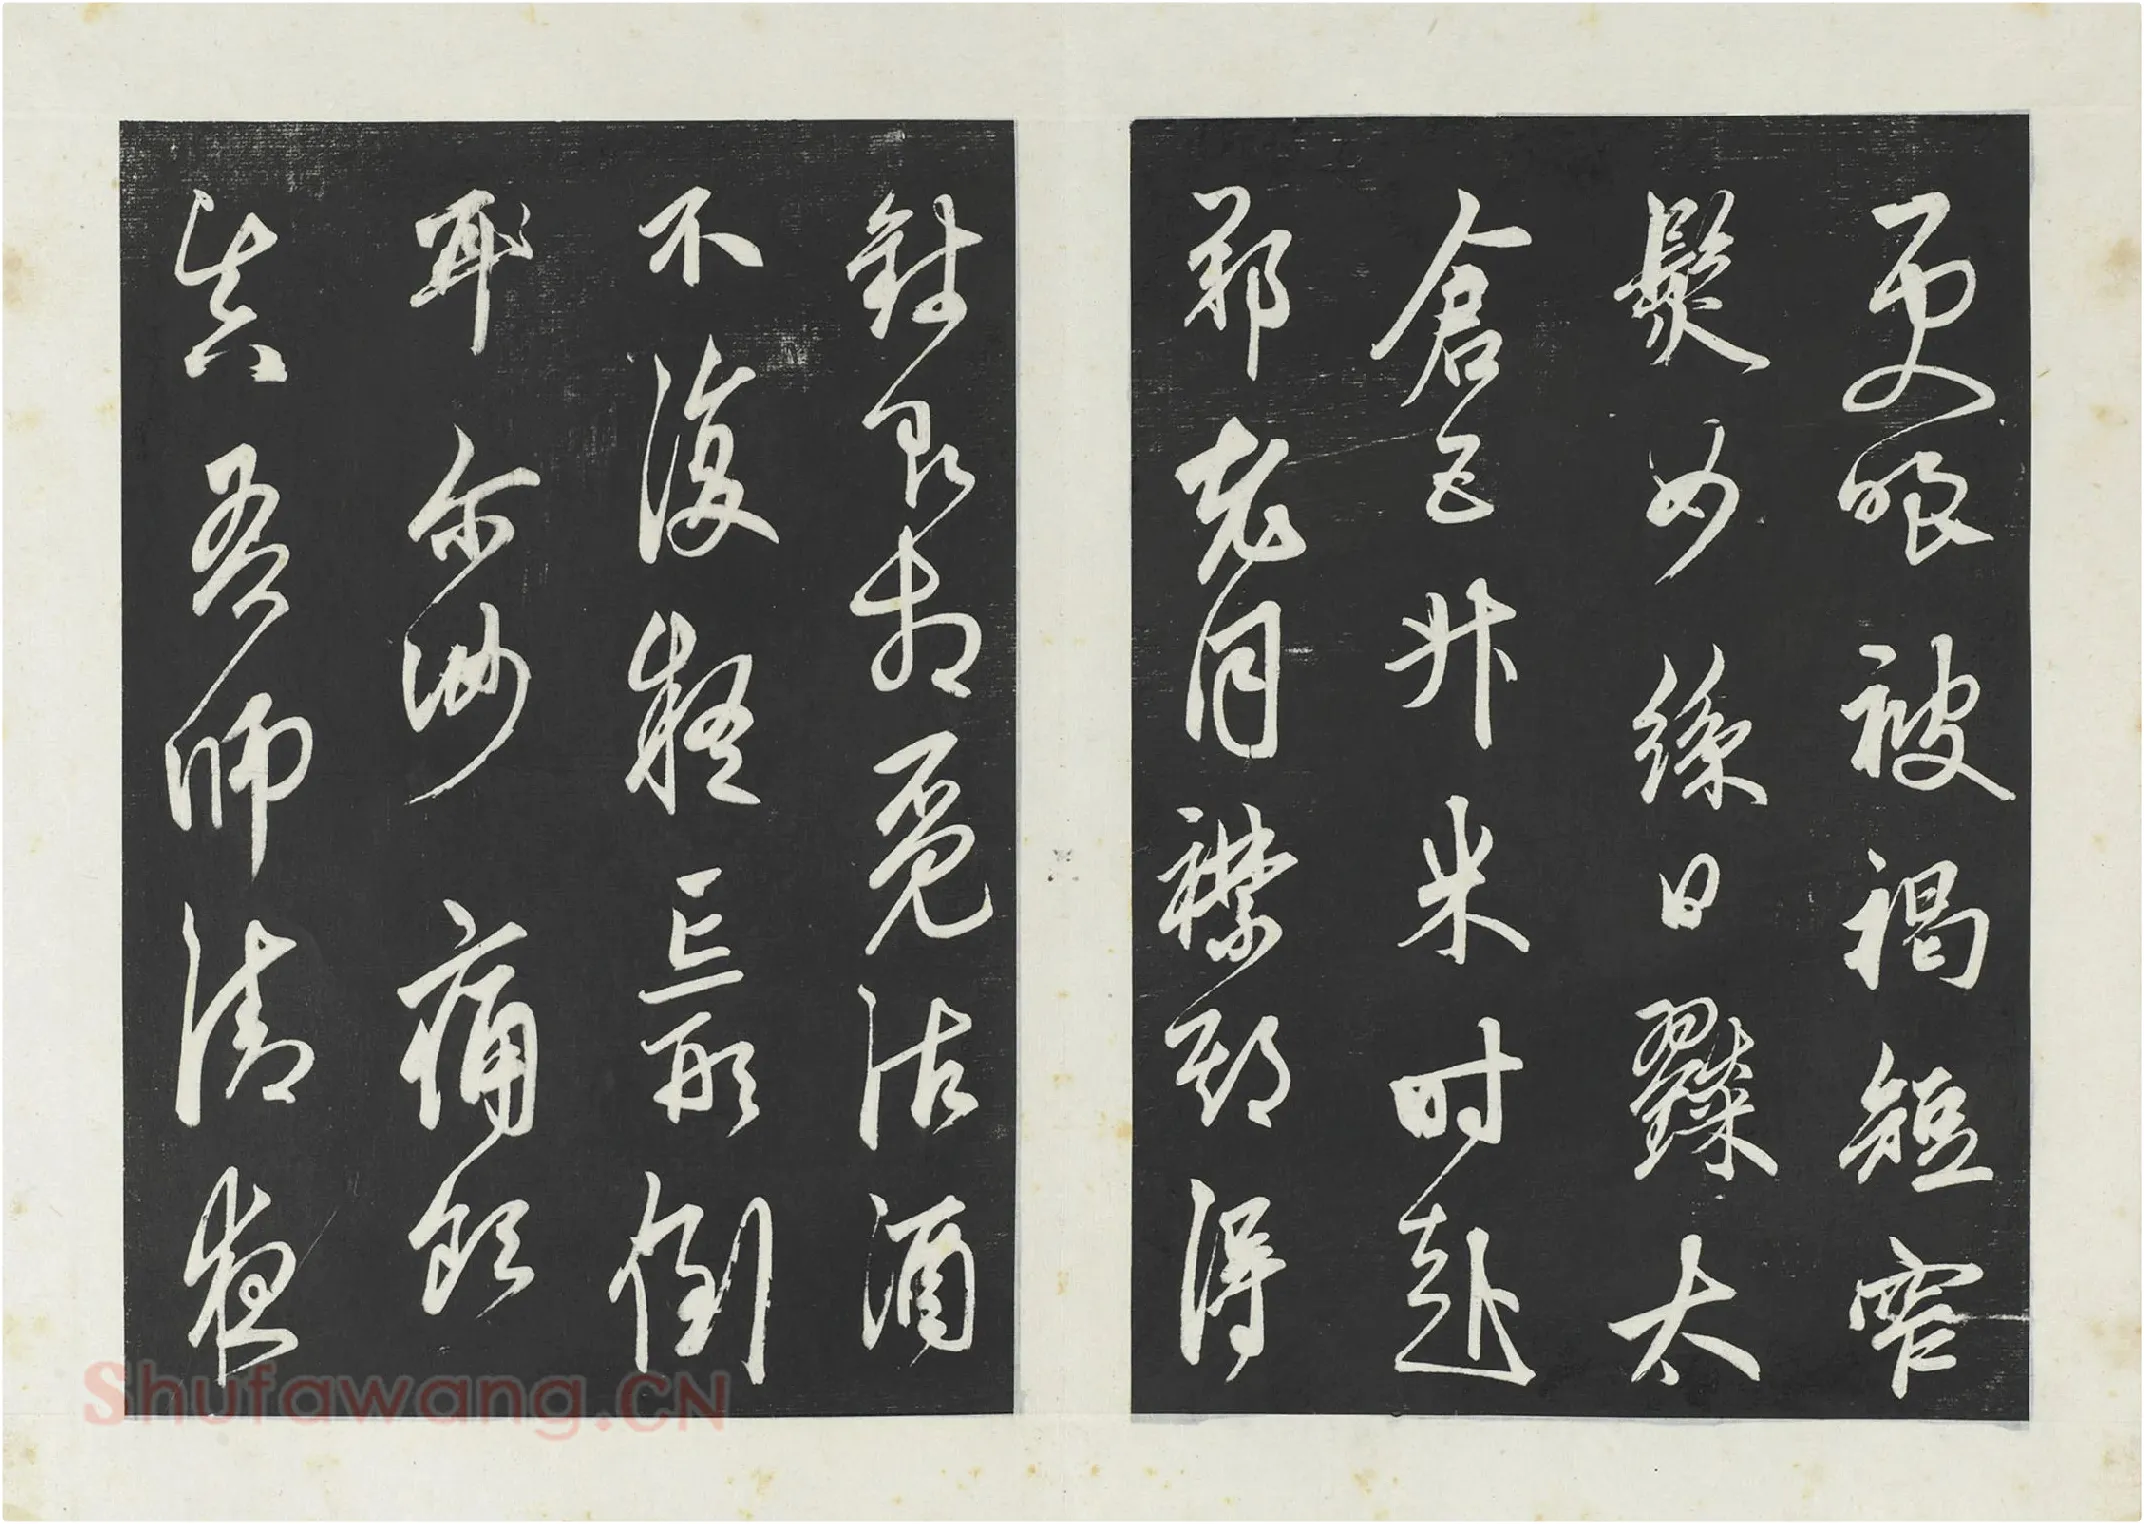 更嗤被褐短窄
鬢如絲日糴太
倉五升米时赴
鄭老同襟期得
錢即相覓沽酒
不復疑忘形倒
耳尔汝痛飲
真吾師清夜
Shufawang.CN